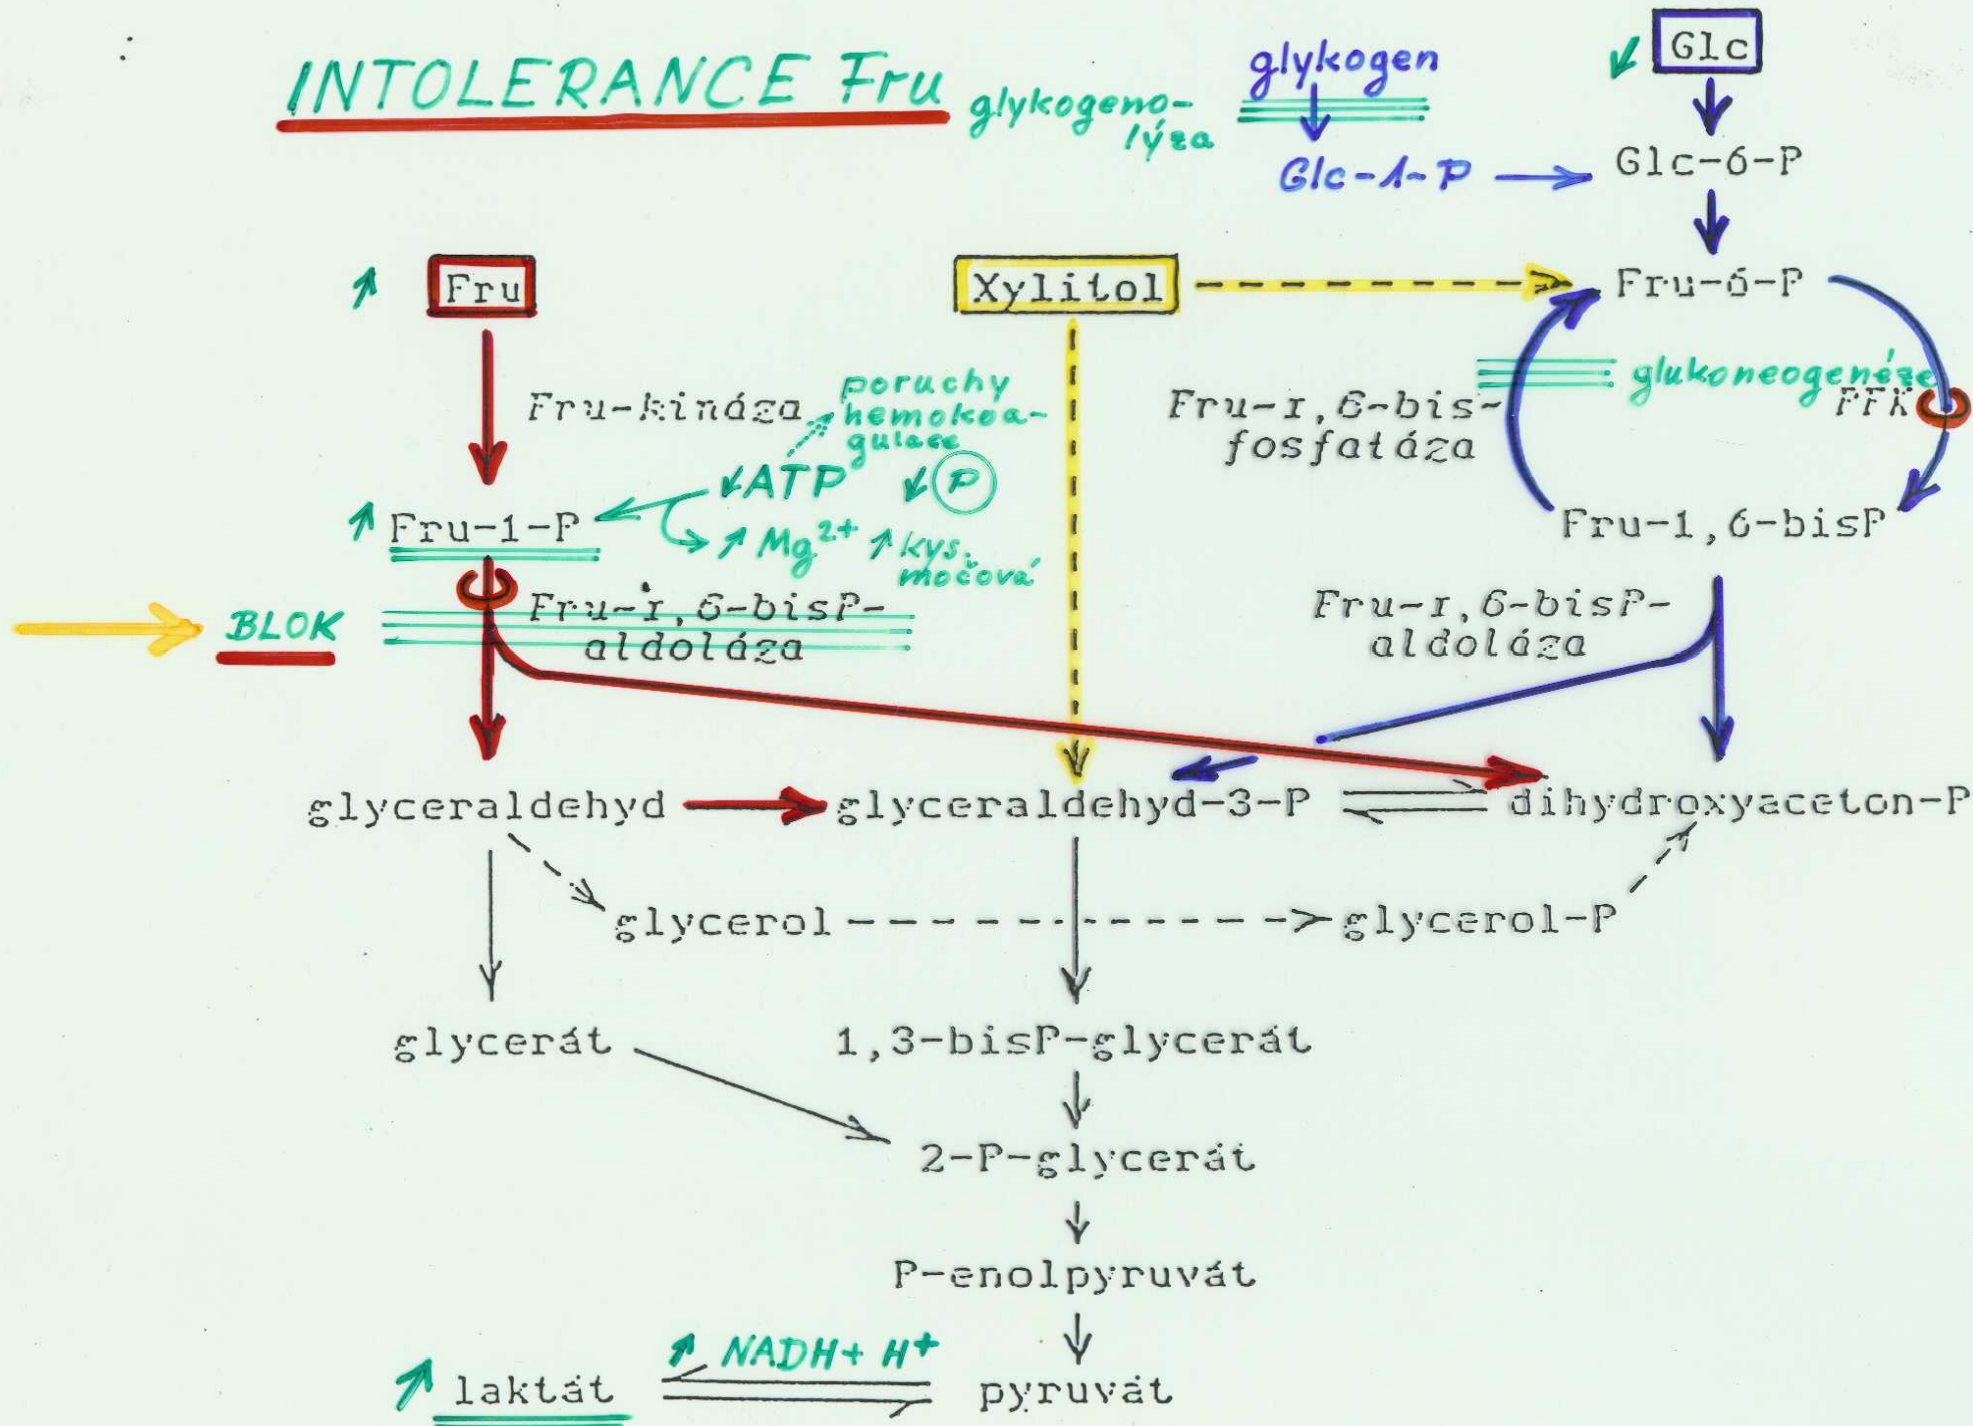 INTOLERANCE Fru
glykogeno-
lýza
glykogen
Glc
Glc-1-P
Glc-6-P
Fru
Xylitol
Fru-6-P
Fru-kináza
poruchy
hemokoa-
gulace
Fru-1,6-bis-
fosfatáza
glukoneogenéze
PFK
ATP
P
Fru-1-P
Mg2+
kys.
močová
Fru-1,6-bisP
BLOK
Fru-1,6-bisP-
aldoláza
Fru-1,6-bisP-
aldoláza
glyceraldehyd
glyceraldehyd-3-P
dihydroxyaceton-P
glycerol
glycerol-P
glycerát
1,3-bisP-glycerát
2-P-glycerát
P-enolpyruvát
NADH+ H+
laktát
pyruvát